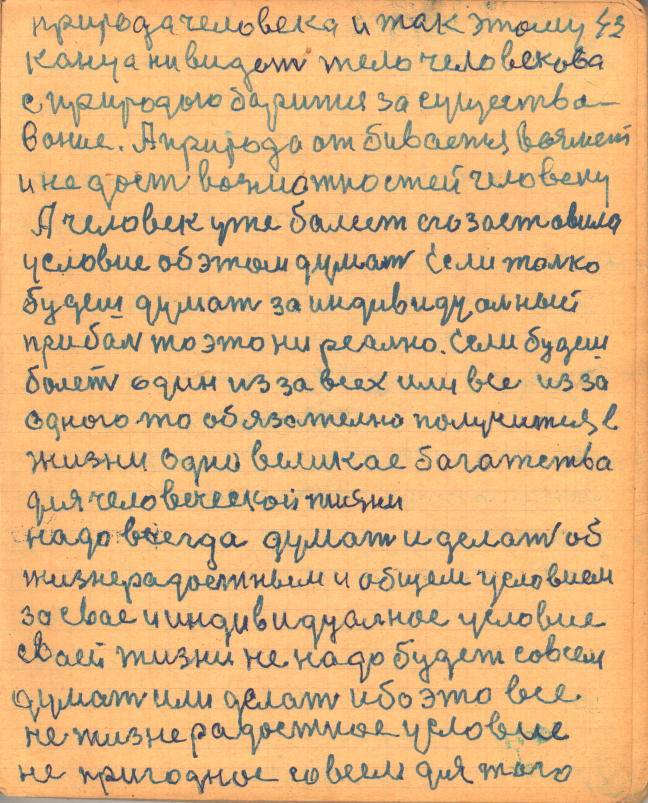 природа человека и так этому 43
канца нивидат тело человекова
с природою барится за существа-
вание. А природа отбивается
и не дает возматностей человеку
А человек уже балеет его заставила
условие об этом думат Если толко
будеш думат за индивидуалный
прибал то это ни реално. Если будеш
болет один из за всех или все из за
одного то обязателно получится в
жизни одно великае багатства
для человеческой жизни
надо всегда думат и делат об
жизнерадостным и общем условием
за свае и индивидуалное условие
сваей жизни не надо будет совсем
думат или делат ибо это все
не жизнерадостное условие
не пригодное совсем для того